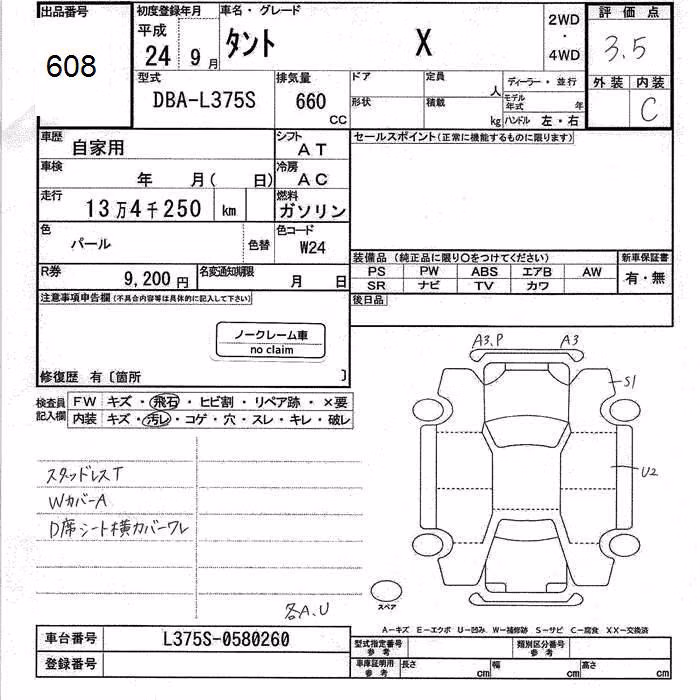 出品番号
608
初度登録年月
平成
24 9 月
車名・グレード
タント X
2WD
・
4WD
評価点
3.5
外装 内装
C
型式
DBA-L375S
排気量
660
CC
ドア
定員
人
ディーラー・並行
形状
積載
kg
モデル年式 年
ハンドル 左・右
車歴
自家用
シフト
AT
セールスポイント(正常に機能するものに限ります)
車検
年 月( 日)
冷房
AC
走行
13万4千250 km
燃料
ガソリン
色
パール
色替
色コード
W24
装備品 (純正品に限り○をつけてください)
新車保証書
PS PW ABS エアB AW
有・無
SR ナビ TV カワ
R券
9,200円
名変通知期限
月 日
後日品
注意事項申告欄(不具合内容等は具体的に記入して下さい)
ノークレーム車
no claim
修復歴 有〔箇所 〕
検査員記入欄
FW キズ・飛石・ヒビ割・リペア跡・×要
内装 キズ・汚レ・コゲ・穴・スレ・キレ・破レ
スタッドレスT
WカバーA
D席シート横カバーワレ
各A.U
A3.P A3
S1
U2
スペア
A―キズ E―エクボ U―凹み W―補修跡 S―サビ C―腐食 XX―交換済
車台番号 L375S-0580260
登録番号
型式指定番号
参考
類別区分番号
参考
車庫証明用
参考
長さ cm 幅 cm 高さ cm